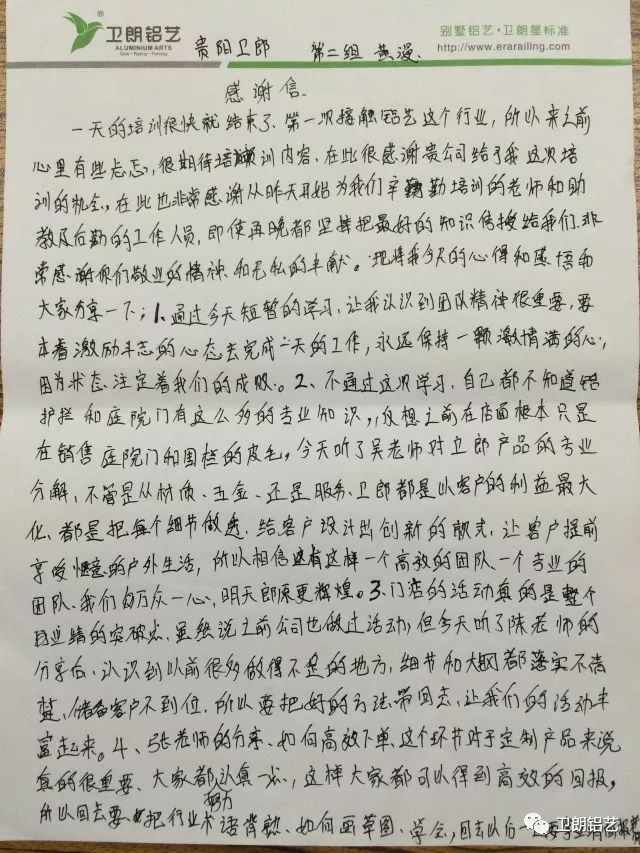 卫朗铝艺
ALUMINIUM ARTS
Gate · Railing · Fencing
别墅铝艺·卫朗星标准
http://www.erarailing.com
贵阳卫郎 第二组 燕
感谢信.
一天的培训很快就结束了、第一次接触铝艺这个行业，所以来之前
心里有些忐忑，很期待培训内容、在此很感谢贵公司给了我这次培
训的机会，在此也非常感谢从昨天开始为我们辛勤培训的老师和助
教及后勤的工作人员，即使再晚都坚持把最好的知识传授给我们、非
常感谢你们敬业的精神和无私的奉献。现将我今天的心得和感悟和
大家分享一下；1、通过今天短暂的学习、让我认识到团队精神很重要，要
本着激励斗志的心态去完成一天的工作，永远保持一颗激情满的心，
因为状态注定着我们的成败。2、不通过这次学习、自己都不知道铝
护栏和庭院门有这么多的专业知识，，仅想之前在店面根本只是
在销售庭院门和围栏的皮毛，今天听了吴老师对卫郎产品的专业
分解、不管是从材质、五金、还是服务、卫郎都是以客户的利益最大
化、都是把每个细节做透、给客户设计出创新的款式、让客户提前
享受惬意的户外生活，所以相信有这样一个高效的团队、一个专业的
团队、我们万众一心，明天郎原更辉煌。3、门店的活动真的是整个
业绩的突破点、虽然说之前公司也做过活动，但今天听了陈老师的
分享后、认识到以前很多做得不足的地方、细节和大纲都落实不清
楚、储备客户不到位、所以要把好的方法带回去、让我们的活动丰
富起来。4、张老师的分享、如何高效下单、这个环节对于定制产品来说
真的很重要、大家都认真一点，这样大家都可以得到高效的回报，
所以回去要努力把行业术语背熟、如何画草图、学会，回去以后一
卫朗铝艺